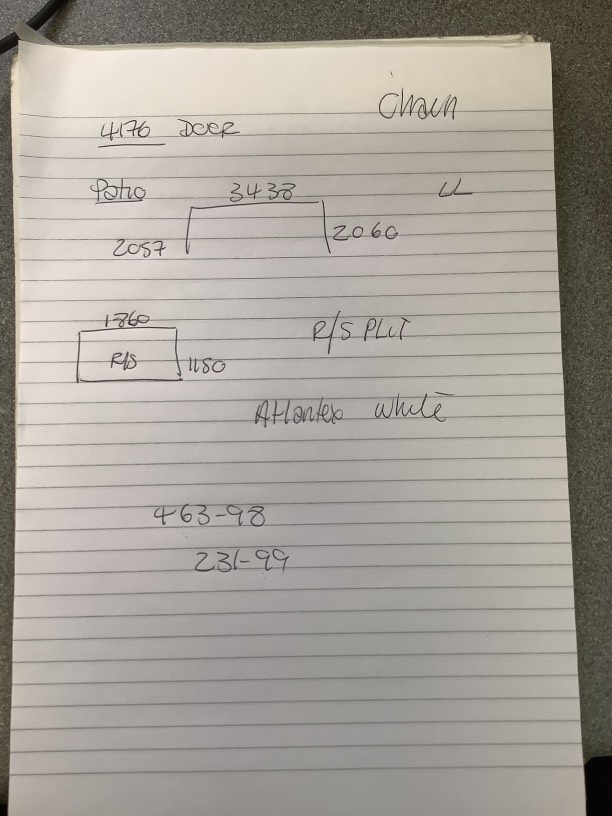 Chain
4176 DOOR
Patio 3438 LL
2057 2060
1360
R/S 1180
R/S PLCT
Atlantex white
463-98
231-99